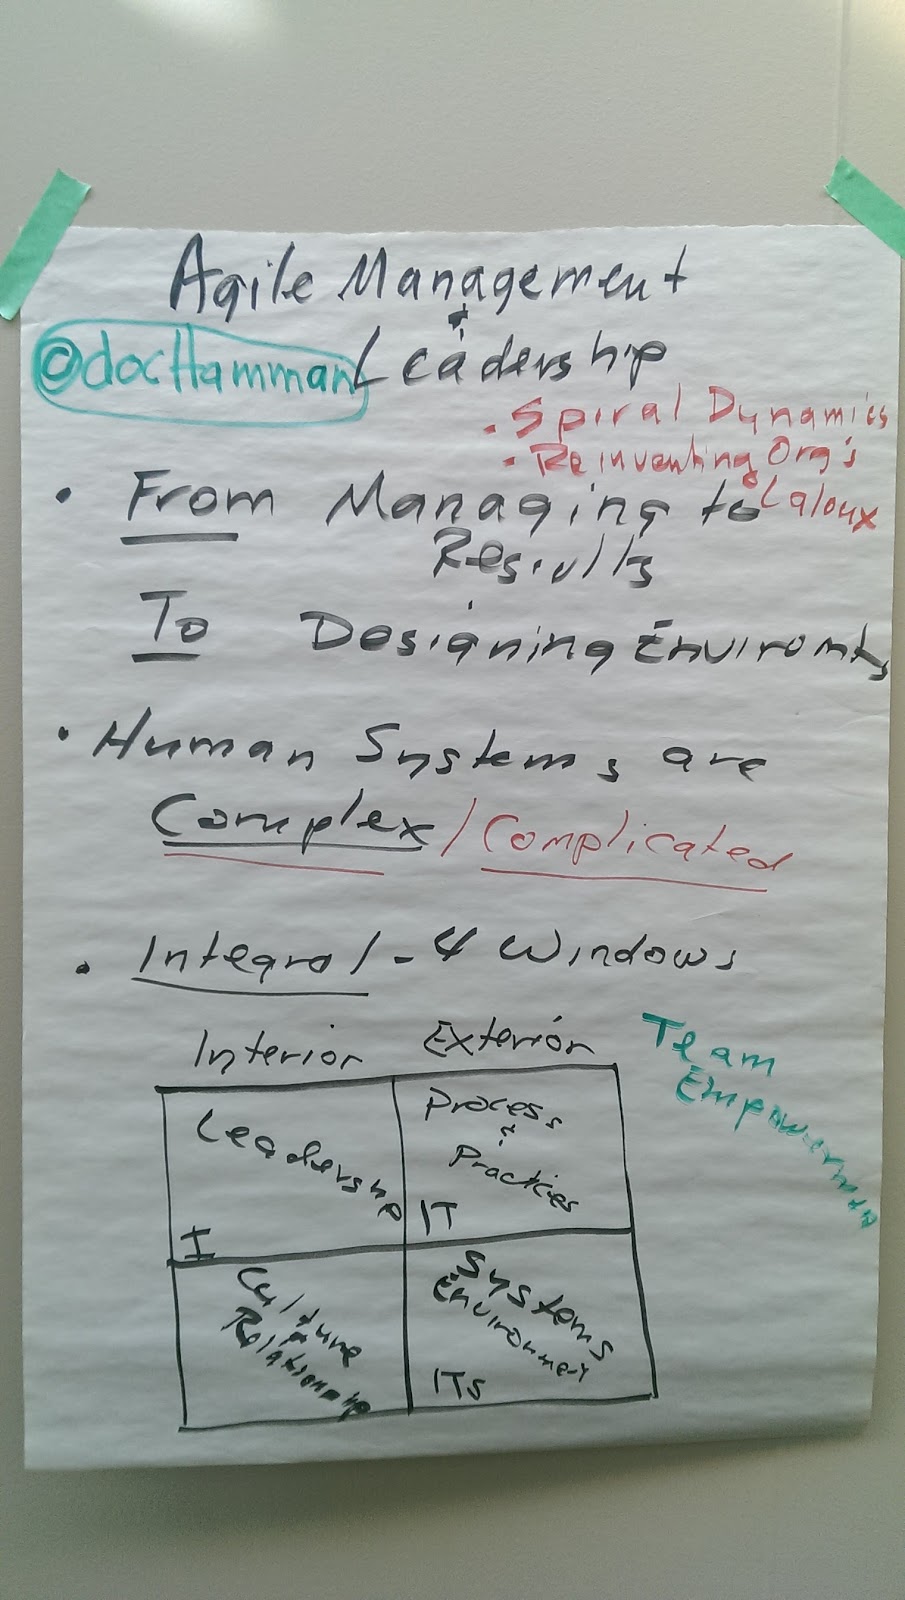 Agile Management
&
@docHamman Leadership
• Spiral Dynamics
• Reinventing Org's
Laloux
• From Managing to
Results
To Designing Enviromts
• Human Systems are
Complex / Complicated
• Integral - 4 Windows
Interior Exterior
Leadership
I
Process
&
Practices
IT
Culture
&
Relationship
Systems
Environment
ITS
Team
Empowerment